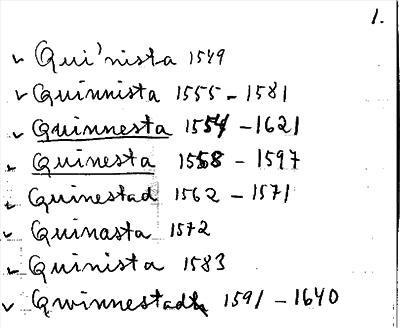 1.
✓ Qui'nista 1549
✓ Quinnista 1555 - 1581
✓ Quinnesta 1554 - 1621
✓ Quinesta 1558 - 1597
✓ Quinestad 1562 - 1571
✓ Quinasta 1572
✓ Quinista 1583
✓ Qwinnestadh 1591 - 1640